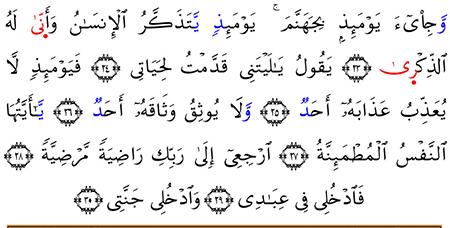 وَجِاْىٓءَ يَوْمَئِذِۭ بِجَهَنَّمَ ۚ يَوْمَئِذٖ يَّتَذَكَّرُ الْإِنسَٰنُ وَأَنّىٰ لَهُ
الذِّكْرىٰ ٢٣ يَقُولُ يَٰلَيْتَنِى قَدَّمْتُ لِحَيَاتِى ٢٤ فَيَوْمَئِذٖ لَّا
يُعَذِّبُ عَذَابَهُۥٓ أَحَدٞ ٢٥ وَّلَا يُوثِقُ وَثَاقَهُۥٓ أَحَدٞ ٢٦ يَّٰٓأَيَّتُهَا
النَّفْسُ الْمُطْمَئِنَّةُ ٢٧ ارْجِعِىٓ إِلَىٰ رَبِّكِ رَاضِيَةٗ مَّرْضِيَّةٗ ٢٨
فَادْخُلِى فِى عِبَٰدِى ٢٩ وَادْخُلِى جَنَّتِى ٣٠